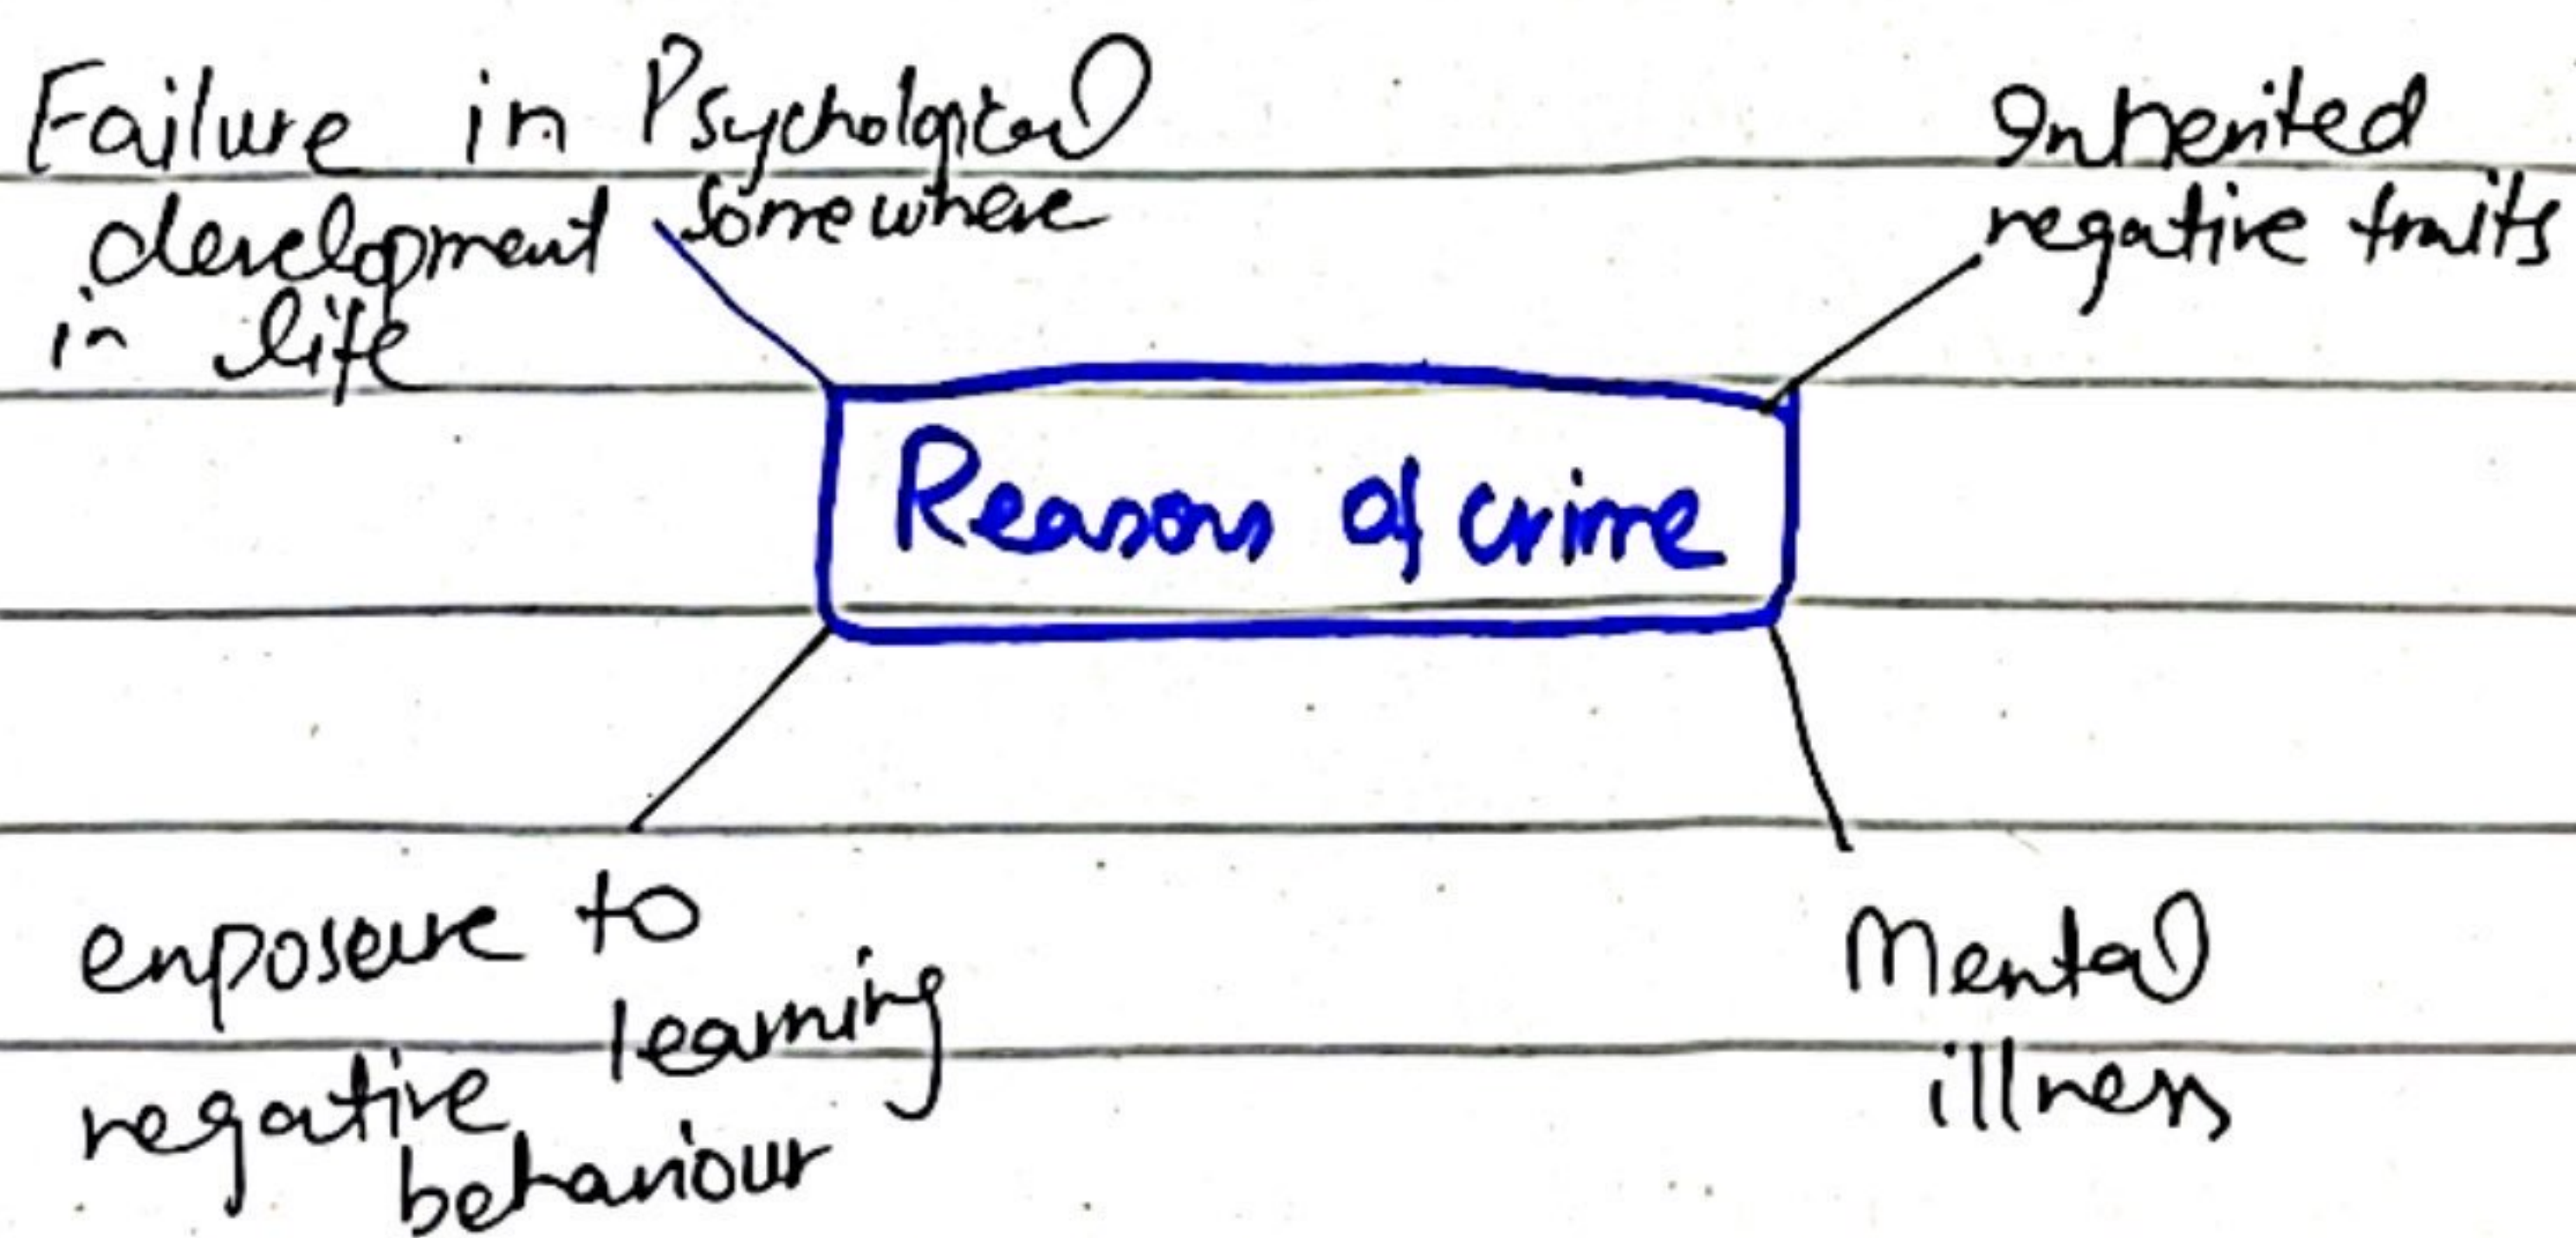 Failure in Psychological
development somewhere
in life
Inherited
negative traits
Reasons of crime
exposeure to
learning
negative
behaviour
Mental
illness